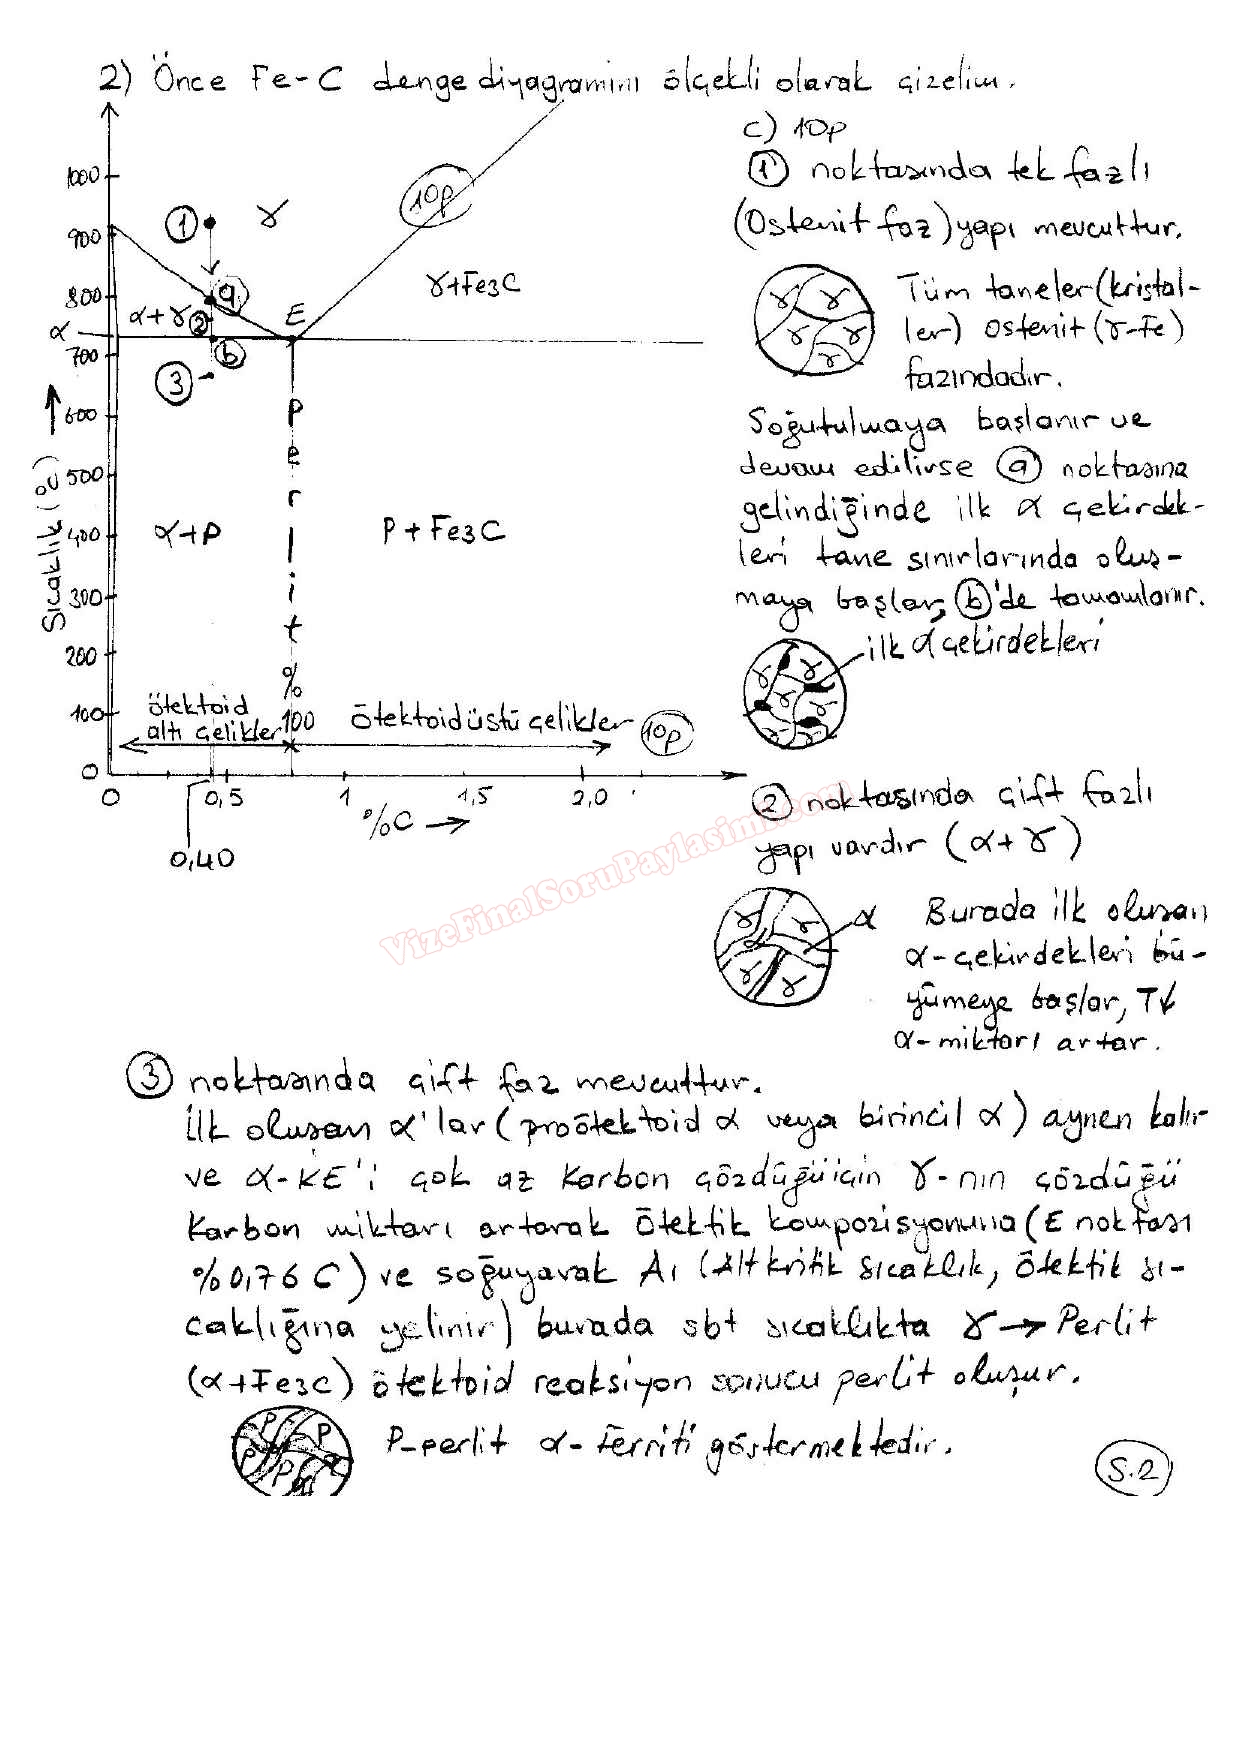 2) Önce Fe-C denge diyagramını ölçekli olarak çizelim.
1000
900
800
α
700
600
500
400
300
200
100
0
Sıcaklık (°C)
1
γ
10p
a
α+γ
2
E
γ+Fe3C
b
3
Perlit
% 100
α+P
P+Fe3C
ötektoid
altı çelikler
ötektoidüstü çelikler
10p
0
0,5
1
1,5
2,0
%C →
0,40
c) 10p
1 noktasında tek fazlı
(Ostenit faz) yapı mevcuttur.
γ γ γ γ γ
Tüm taneler (kristal-
ler) Ostenit (γ-Fe)
fazındadır.
Soğutulmaya başlanır ve
devam edilirse a noktasına
gelindiğinde ilk α çekirdek-
leri tane sınırlarında oluş-
maya başlar, b'de tamamlanır.
ilk α çekirdekleri
γ γ γ γ γ
2 noktasında çift fazlı
yapı vardır (α+γ)
γ γ γ γ
α
Burada ilk oluşan
α-çekirdekleri bü-
yümeye başlar, T↓
α-miktarı artar.
3 noktasında çift faz mevcuttur.
İlk oluşan α'lar (proötektoid α veya birincil α) aynen kalır
ve α-KE'i çok az karbon çözdüğü için γ-nın çözdüğü
karbon miktarı artarak ötektik kompozisyonuna (E noktası
%0,76 C) ve soğuyarak A1 (Alt kritik sıcaklık, ötektik sı-
caklığına gelinir) burada sbt sıcaklıkta γ → Perlit
(α+Fe3C) ötektoid reaksiyon sonucu perlit oluşur.
P P P P
P-perlit α-Ferriti göstermektedir.
S.2
VizeFinalSoruPaylasimi.com